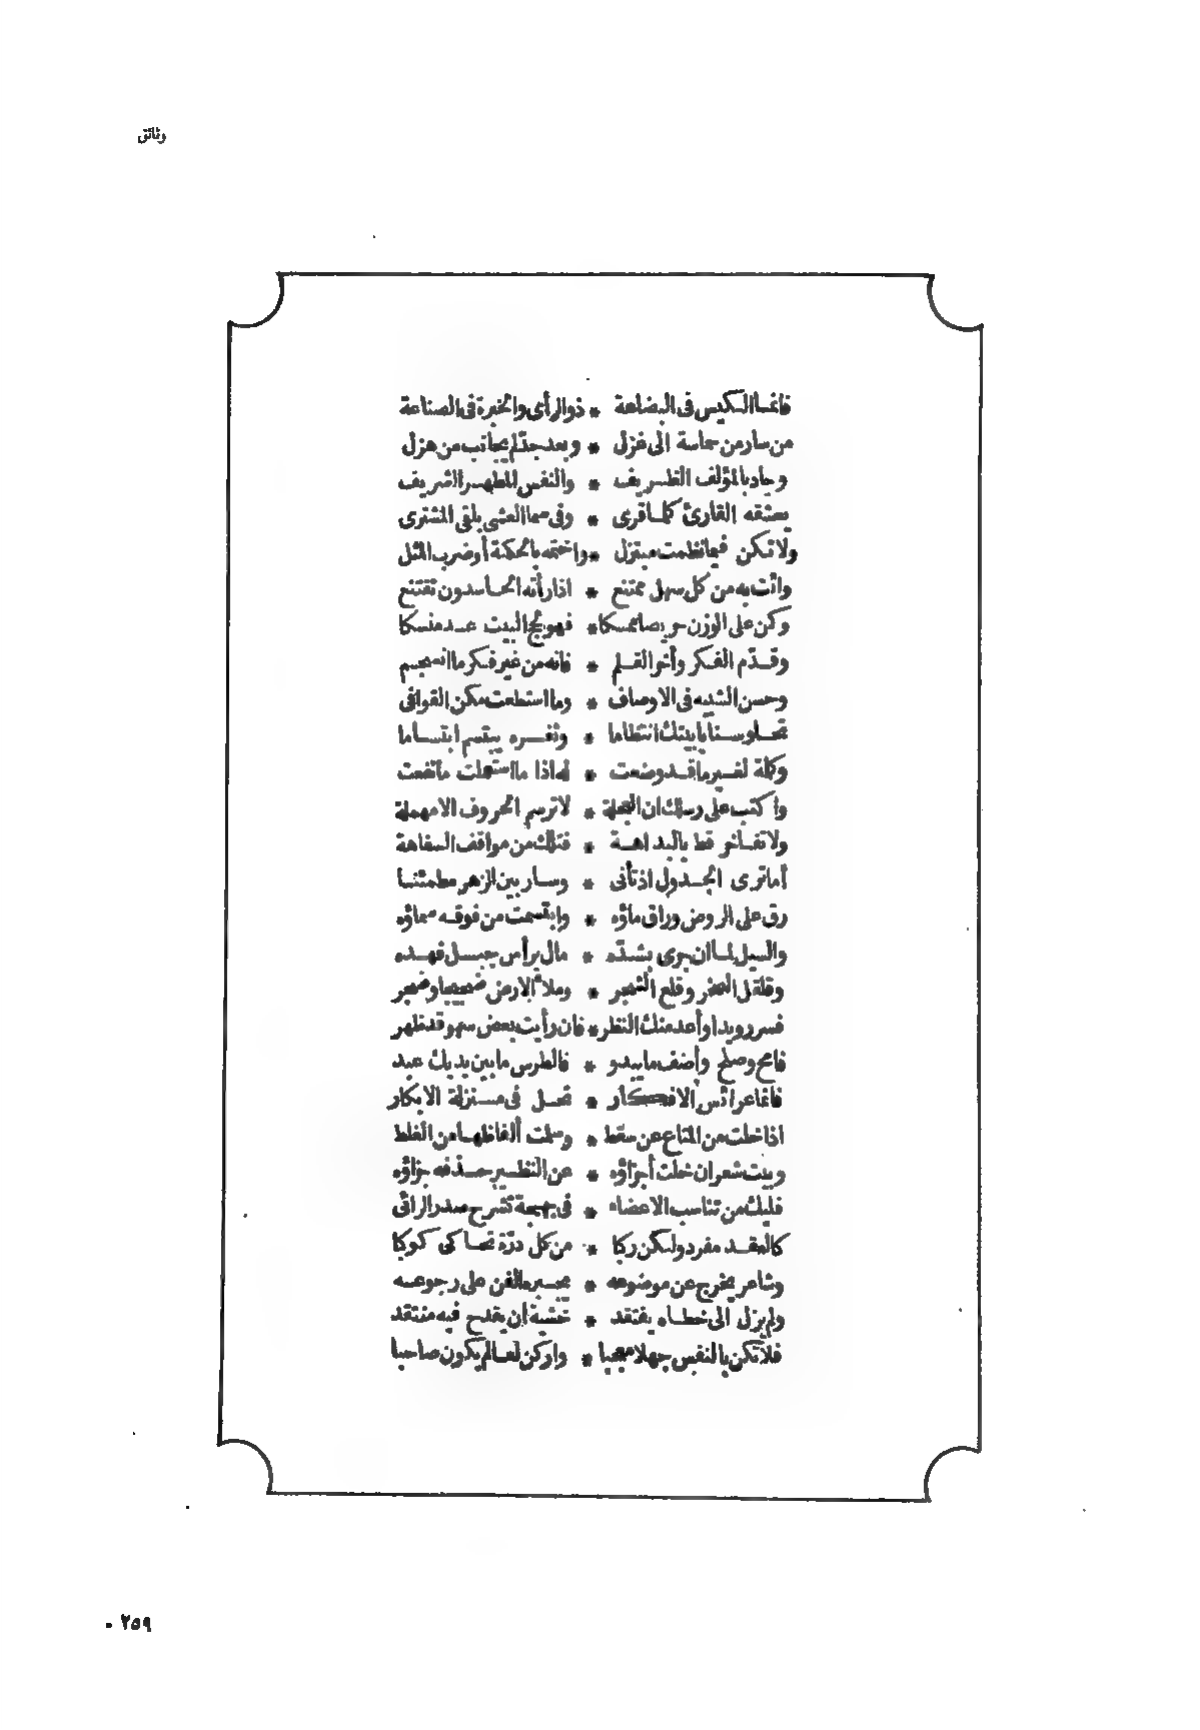 وثائق
فانما الكيس فى البضاعة * ذو الرأى والخبرة فى الصناعة
من سار من حماسة الى غزل * وبعد جد لم يجانب من هزل
وجاد بالمؤلف الظريف * والنفس المطهر الشريف
يعشقه القارئ كلما قرى * وفى سما العشى يلقى المشترى
ولا تكن فيما نظمت مبتزل * واختمه بالحكمة أو ضرب المثل
وائت به من كل سهل ممتنع * اذا رأته الحاسدون تقتنع
وكن على الوزن حريصا ممسكا * فهو لحج البيت عد منسكا
وقدّم الفكر وأخر القلم * فانه من غير فكر ما انسجم
وحسن التشبيه فى الاوصاف * وما استطعت مكن القوافى
تحلو سنايا بيتك انتظاما * وثغره يبتسم ابتساما
وكلة لغير ما قد وضعت * له اذا ما استعملت ما نفعت
واكتب على رسلك ان العجلة * لا ترسم الحروف الا مهملة
ولا تفاخر قط بالبداهة * فتلك من مواقف السفاهة
أما ترى الجدول اذ تأنى * وسار بين الزهر مطمئنا
رق على الروض وراق ماؤه * وابتسمت من فوقه سماؤه
والسيل لما ان جرى بشدّه * مال برأس جبل فهده
وقلقل الصخر وقلع الشجر * وملأ الارض ضجيجا وضجر
فسر رويدا وأعد منك النظر * فان رأيت بعض سهو قد ظهر
فامح وصلح وأضف ما يبدو * فالطرس ما بين يديك عبد
فانما عرائس الافكار * تحل فى منزلة الابكار
اذا خلت من المتاع عن سقط * وسلمت ألفاظها من الغلط
وبيت شعر ان خلت أجزاؤه * عن النظير حذفه جزاؤه
فليك من تناسب الاعضاء * فى بهجة تشرح صدر الرائى
كالعقد مفرد ولكن ركبا * من كل درّة تحاكى كوكبا
وشاعر يخرج عن موضوعه * يجبره الفن على رجوعه
ولم يزل الى خطاه يفتقد * خشية أن يقدح فيه منتقد
فلا تكن بالنفس جهلا معجبا * واركن لعالم يكون صاحبا
٢٥٩